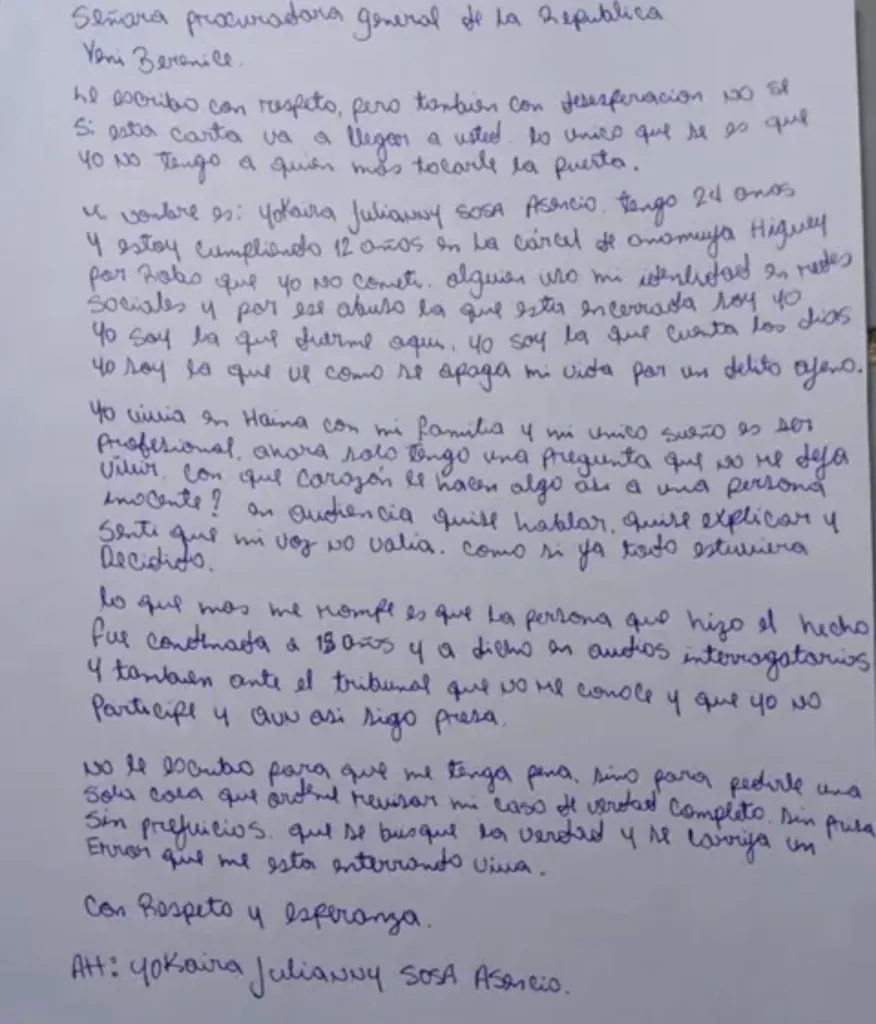 Señora procuradora general de la Republica
Yeni Berenice.
Le escribo con respeto, pero tambien con desesperacion no se
si esta carta va a llegar a usted. lo unico que se es que
yo no tengo a quien mas tocarle la puerta.
Mi nombre es: Yokaira Julianny Sosa Asencio. tengo 24 anos
y estoy cumpliendo 12 años en la cárcel de anamuya Higuey
por Robo que yo no cometi. alguien uso mi identidad en redes
sociales y por ese abuso la que esta encerrada soy yo
yo soy la que duerme aqui, yo soy la que cuenta los dias
yo soy la que ve como se apaga mi vida por un delito ajeno.
Yo vivia en Haina con mi familia y mi unico sueño es ser
Profesional. ahora solo tengo una pregunta que no me deja
vivir. con que corazón le hacen algo asi a una persona
inocente? en audiencia quise hablar, quise explicar y
senti que mi voz no valia. como si ya todo estuviera
Decidido.
lo que mas me rompe es que la persona que hizo el hecho
fue condenada a 15 años y a dicho en audios interrogatorios
y tambien ante el tribunal que no me conoce y que yo no
Participe y aun asi sigo presa.
No le escribo para que me tenga pena, sino para pedirle una
sola cosa que ordene revisar mi caso de verdad completo. sin prisa
sin prejuicios. que se busque la verdad y se corrija un
Error que me esta enterrando viva.
Con Respeto y esperanza.
Att: Yokaira Julianny Sosa Asencio.